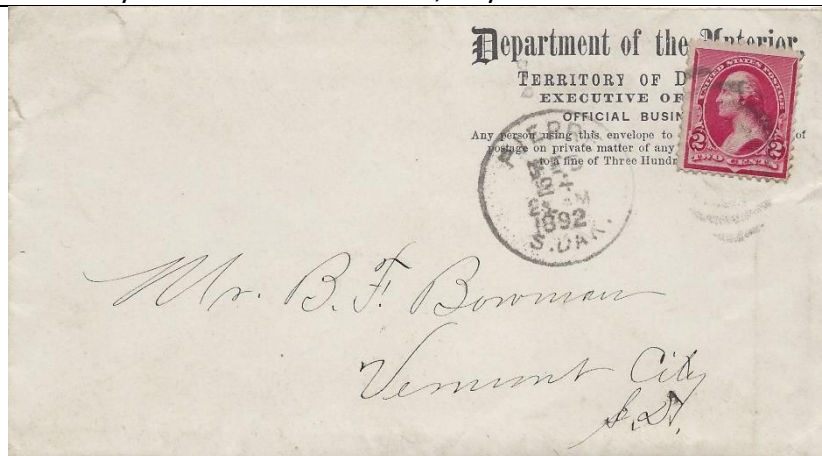 Department of the Interior,
TERRITORY OF D
EXECUTIVE OF
OFFICIAL BUSIN
Any person using this envelope to of
postage on private matter of any
to a fine of Three Hundr
UNITED STATES POSTAGE
2 2
TWO CENTS
PIERRE
1892
S. DAK.
Mr. B. F. Bowman
Vermont City
S.D.